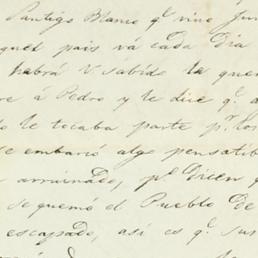 Santigo Blanco qe vino Jun
quel pais vá cada dia
habrá V sabido la que
re á Pedro y le dice qe a
o le tocaba parte pr los
se embarcó algo pensatib
arruinado, ps dicen q
se quemó el Pueblo De
escapado, así es qe sus